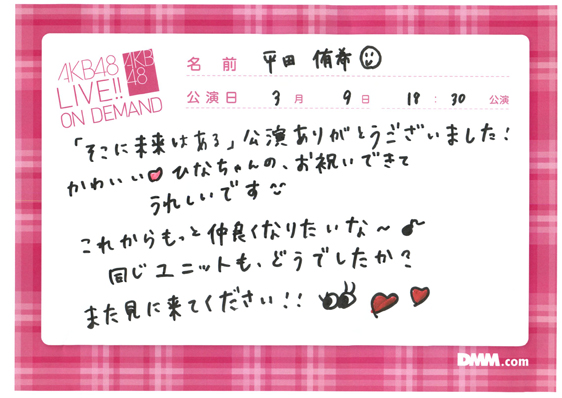 AKB48
LIVE!!
ON DEMAND
AKB
48
名前 平田 侑希
公演日 3月 9日 18:30 公演
「そこに未来はある」公演ありがとうございました!
かわいい ひなちゃんの、お祝いできて
うれしいです
これからもっと仲良くなりたいな〜
同じユニットも、どうでしたか?
また見に来てください!!
DMM.com